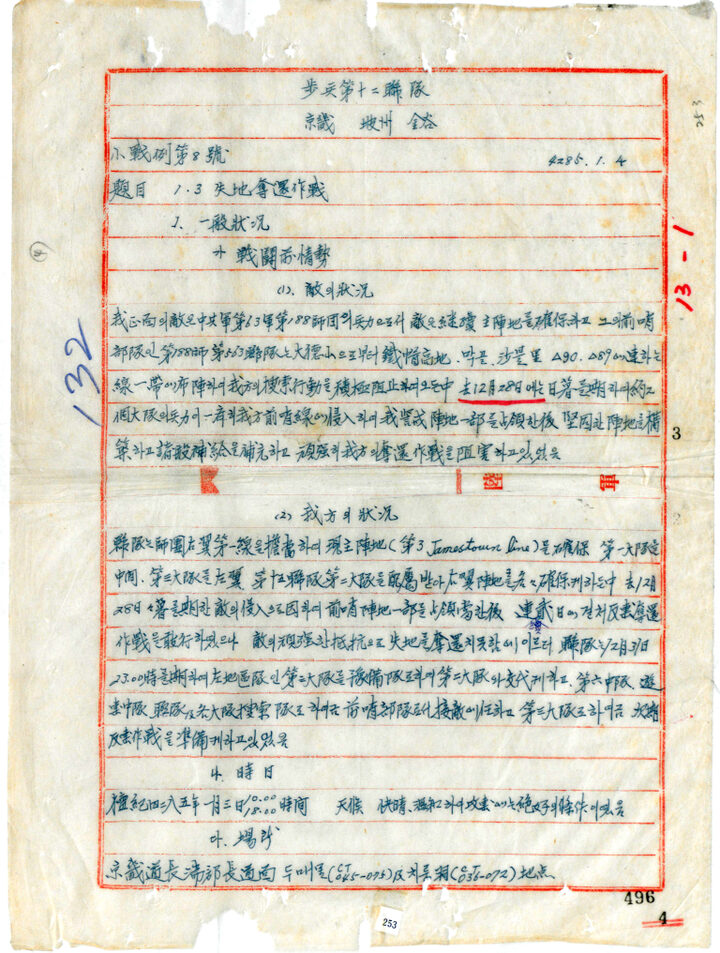 步兵第十二聯隊
京畿 坡州 金谷
小戰例第8號 4285.1.4
題目 1.3 失地奪還作戰
1. 一般狀況
가 戰鬪前情勢
(1). 敵의 狀況
我正面의 敵은 中共軍第63軍第188師团의 兵力으로서 敵은 継續 主陣地를 確保하고 그의 前哨
部隊인 第188師第563聯隊는 大德山으로부터 鐵帽高地. 막골, 沙是里 △90. △89에 連하는
線一帶에 布陣하여 我方의 搜索行動을 積極阻止하여오든中 去12月28日에는 日暮를 期하여 約2
個大隊의 兵力이 一斉히 我方前哨線에 侵入하여 我警戒陣地一部를 占領한後 堅固한 陣地를 構
築하고 諸般補給을 補充하고 頑强히 我方의 奪還作戰을 阻害하고 있었음
軍 陸
(2) 我方의 狀況
聯隊는 師團右翼第一線을 擔當하여 現主陣地(第3 Jamestown line)를 確保 第一大隊는
中間. 第三大隊는 左翼 第十五聯隊第二大隊를 配屬받아 右翼陣地를 各々確保케하든中 去12月
28日 日暮를 期한 敵의 侵入으로 因하여 前哨陣地一部를 占領當한後 連 日에 걸처 反擊奪還
作戰을 敢行하였으나 敵의 頑强한 抵抗으로 失地를 奪還치 못함에 이르다 聯隊는 12月31日
23.00時를 期하여 左地區隊인 第三大隊를 豫備隊로하여 第二大隊와 交代케하고, 第六中隊, 遊
擊中隊, 聯隊 及 各大隊搜索隊로 하여금 前哨部隊로서 接敵에 任하고 第三大隊로하여금
反擊作戰을 準備케하고 있었음
나. 時日
檀紀四二八五年一月三日 10.00 18.00 時間 天候 快晴, 溫和하여 攻擊에는 絶好의 條件이였음
다. 場所
京畿道長湍郡長道面 두매골(CT 045-075) 及 (CT 036-072) 地点
132
13-1
3
253
496
4
253